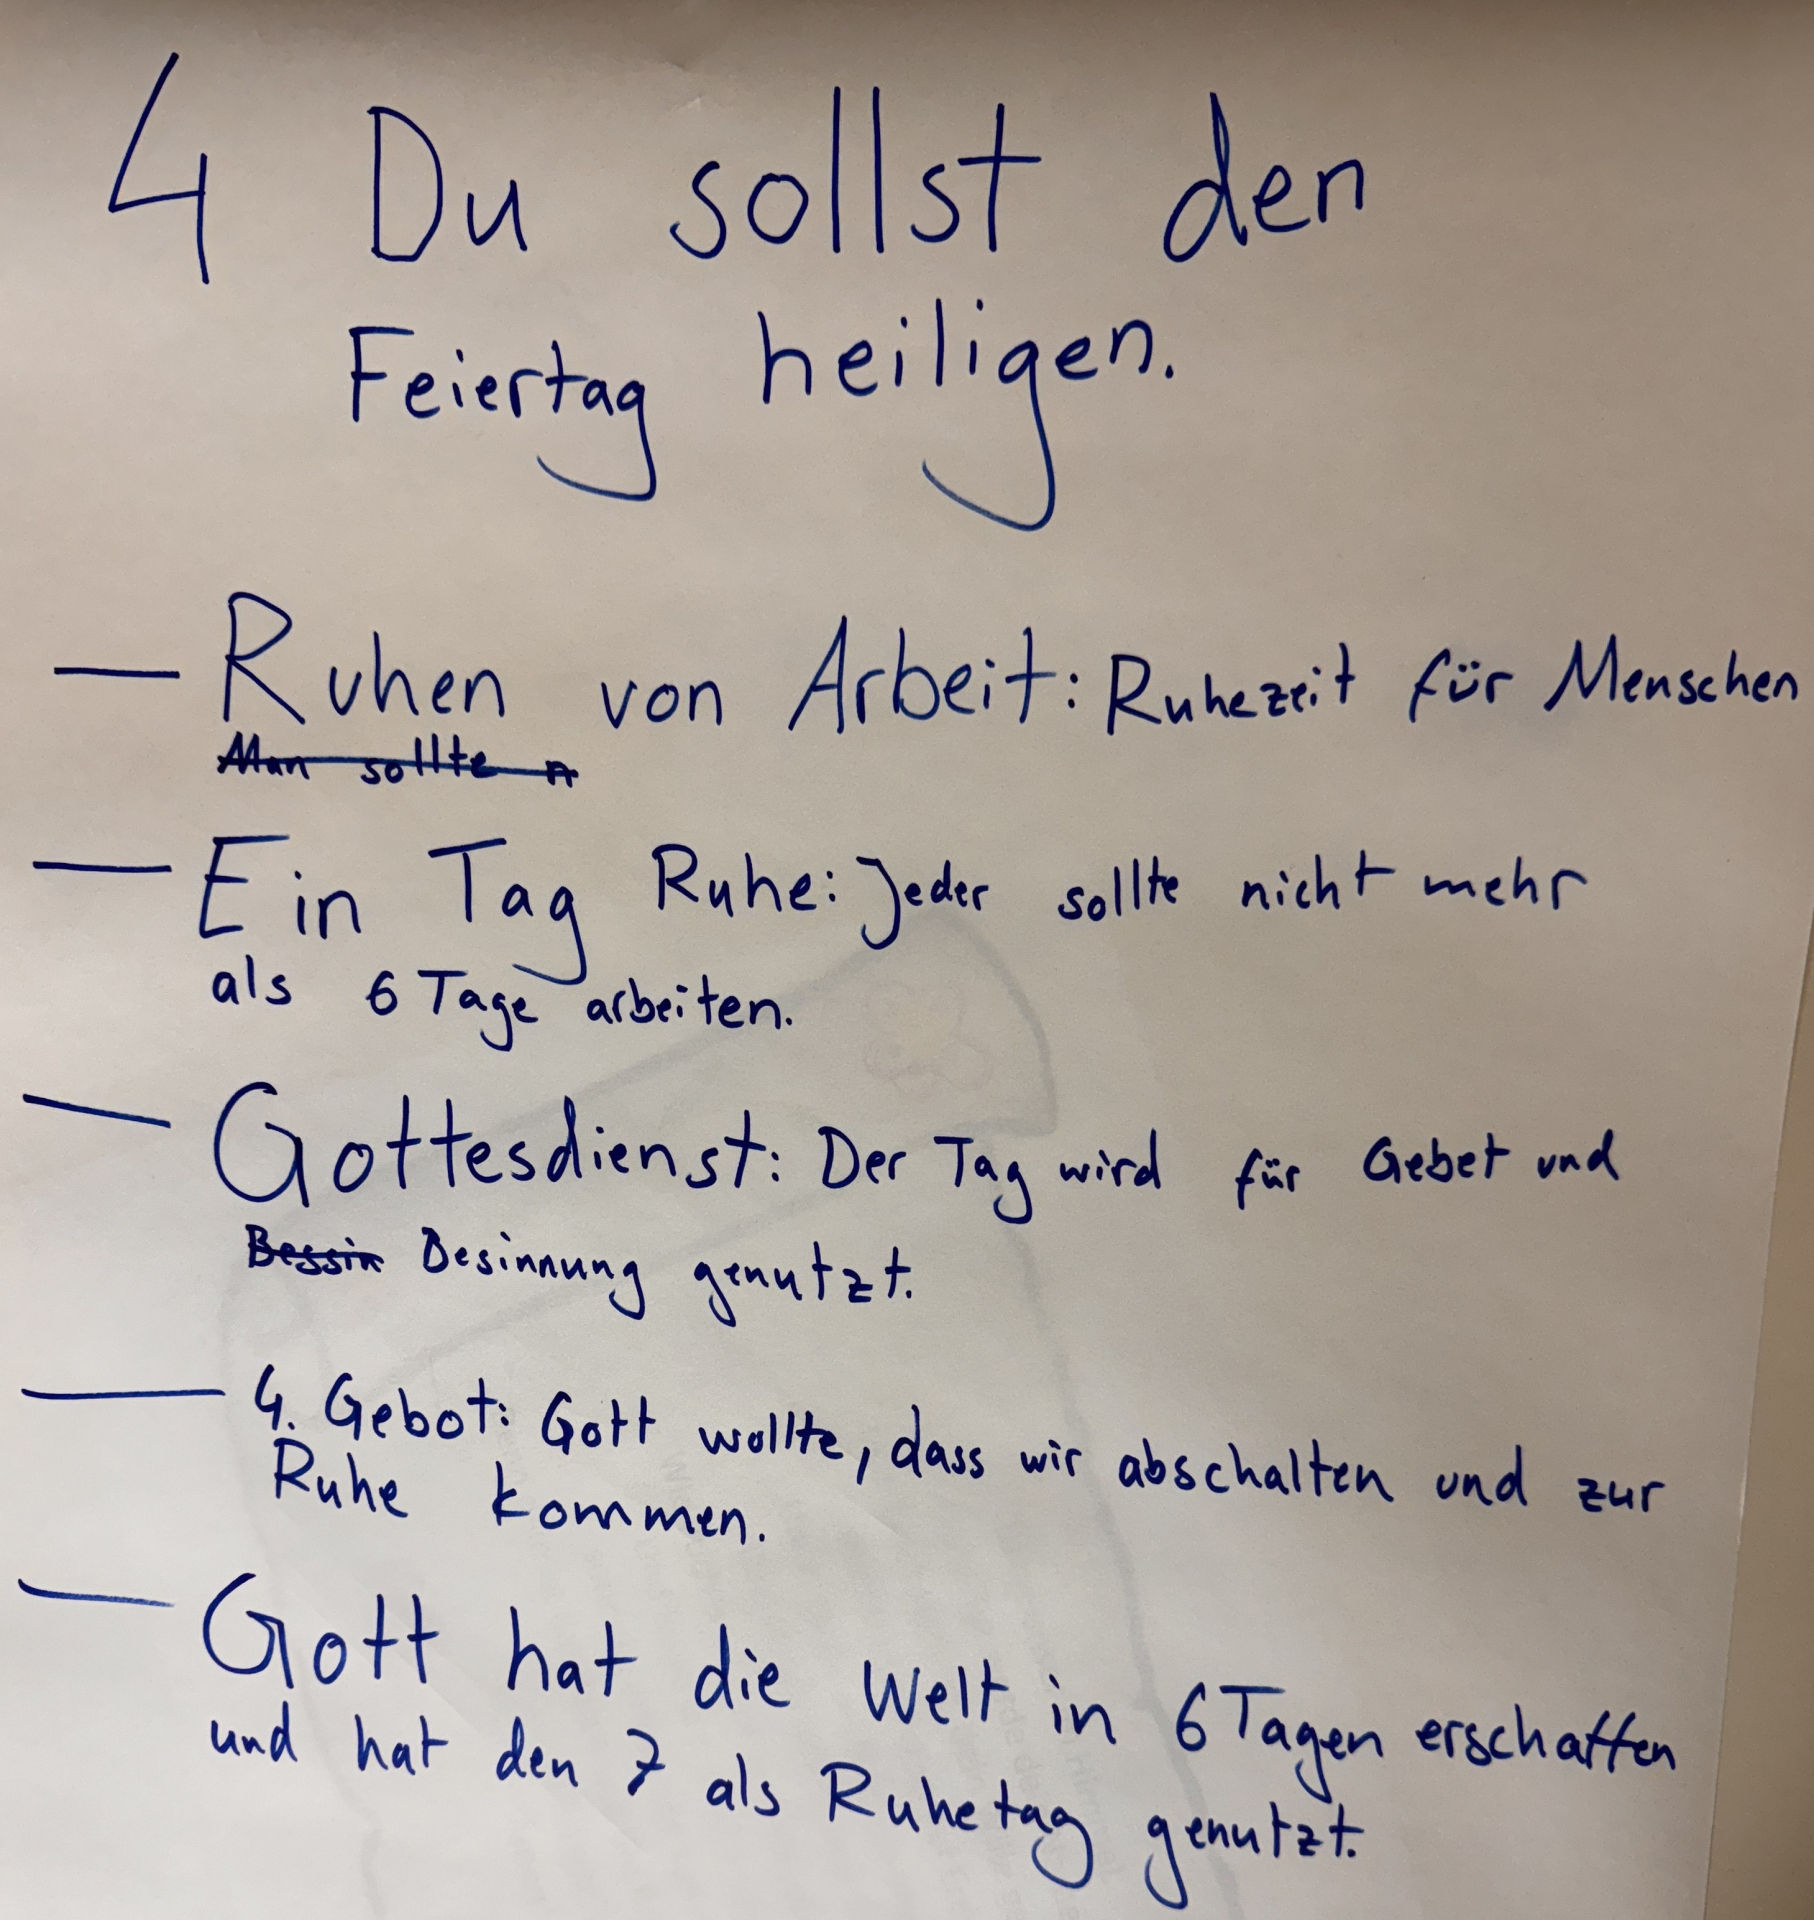 4 Du sollst den
Feiertag heiligen.
— Ruhen von Arbeit: Ruhezeit für Menschen
Man sollte A
— Ein Tag Ruhe: Jeder sollte nicht mehr
als 6 Tage arbeiten.
— Gottesdienst: Der Tag wird für Gebet und
Bessin Besinnung genutzt.
— 4. Gebot: Gott wollte, dass wir abschalten und zur
Ruhe kommen.
— Gott hat die Welt in 6 Tagen erschaffen
und hat den 7 als Ruhetag genutzt.